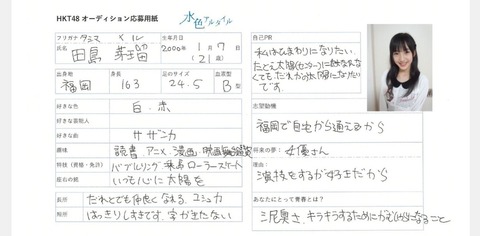 HKT48 オーディション応募用紙
水色アルタイル
フリガナ タシマ メル
氏名 田島 芽瑠
生年月日
2000年 1月 7日
(21歳)
出身地 福岡
身長 163
足のサイズ 24.5
血液型 B型
好きな色 白・赤
好きな芸能人
好きな曲 サザンカ
趣味 読書 アニメ 漫画 映画鑑賞
特技（資格・免許） バブルリング 乗馬 ローラースケート
座右の銘 いつも心に太陽を
長所 だれとでも仲良くなれる コミュ力
短所 はっきりしすぎです。字が
自己PR
私はひまわりになりたい。
たとえ太陽(センター)に
なくても だれかの太陽になりたい
です。
志望動機
福岡で自宅から通えるから
将来の夢： 女優さん
理由：
演技をするがすきだから
あなたにとって青春とは？
泥臭さ、キラキラするために
なること